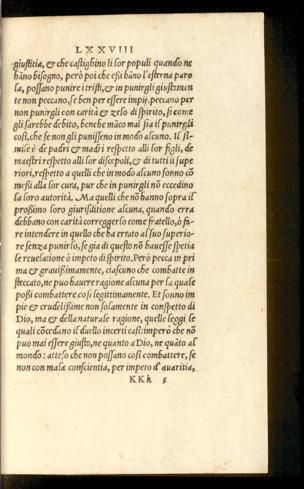 LXXVIII
giustitia, & che castighino li lor populi quando ne
hāno bisogno, però poi che essi hāno l'esterna paro
la, possano punire i tristi, & in punirgli giustamen
te non peccano, se ben per essere impij, peccano per
non punirgli con carità & zelo di spirito, si come
gli sarebbe debito, benche māco mal sia il punirgli
cosi, che se non gli punisseno in modo alcuno. Il si-
mile è de padri & madri respetto alli lor figli, de
maestri respetto alli lor discepoli, & di tutti li supe
riori, respetto a quelli che in modo alcuno sonno cō
messi alla lor cura, pur che in punirgli nō eccedino
la loro autorità. Ma quelli che nō hanno sopra il
prossimo loro giurisditione alcuna, quando erra
debbano con carità correggerlo come fratello, ò fa-
re intendere in quello che ha errato al suo superio-
re senza punirlo, se gia di questo nō havesse spetia
le revelatione ò impeto di spirito. Però pecca in pri
ma & gravissimamente, ciascuno che combatte in
steccato, ne puo havere ragione alcuna per la quale
possi combattere cosi legittimamente. Et sonno im
pie & crudelissime non solamente in conspetto di
Dio, ma & della naturale ragione, quelle leggi le
quali cōcedano il duello incerti casi: imperò che nō
puo mai essere giusto, ne quanto a Dio, ne quāto al
mondo: atteso che non possano cosi combattere, se
non con mala conscientia, per impeto d'avaritia,
KKk 5